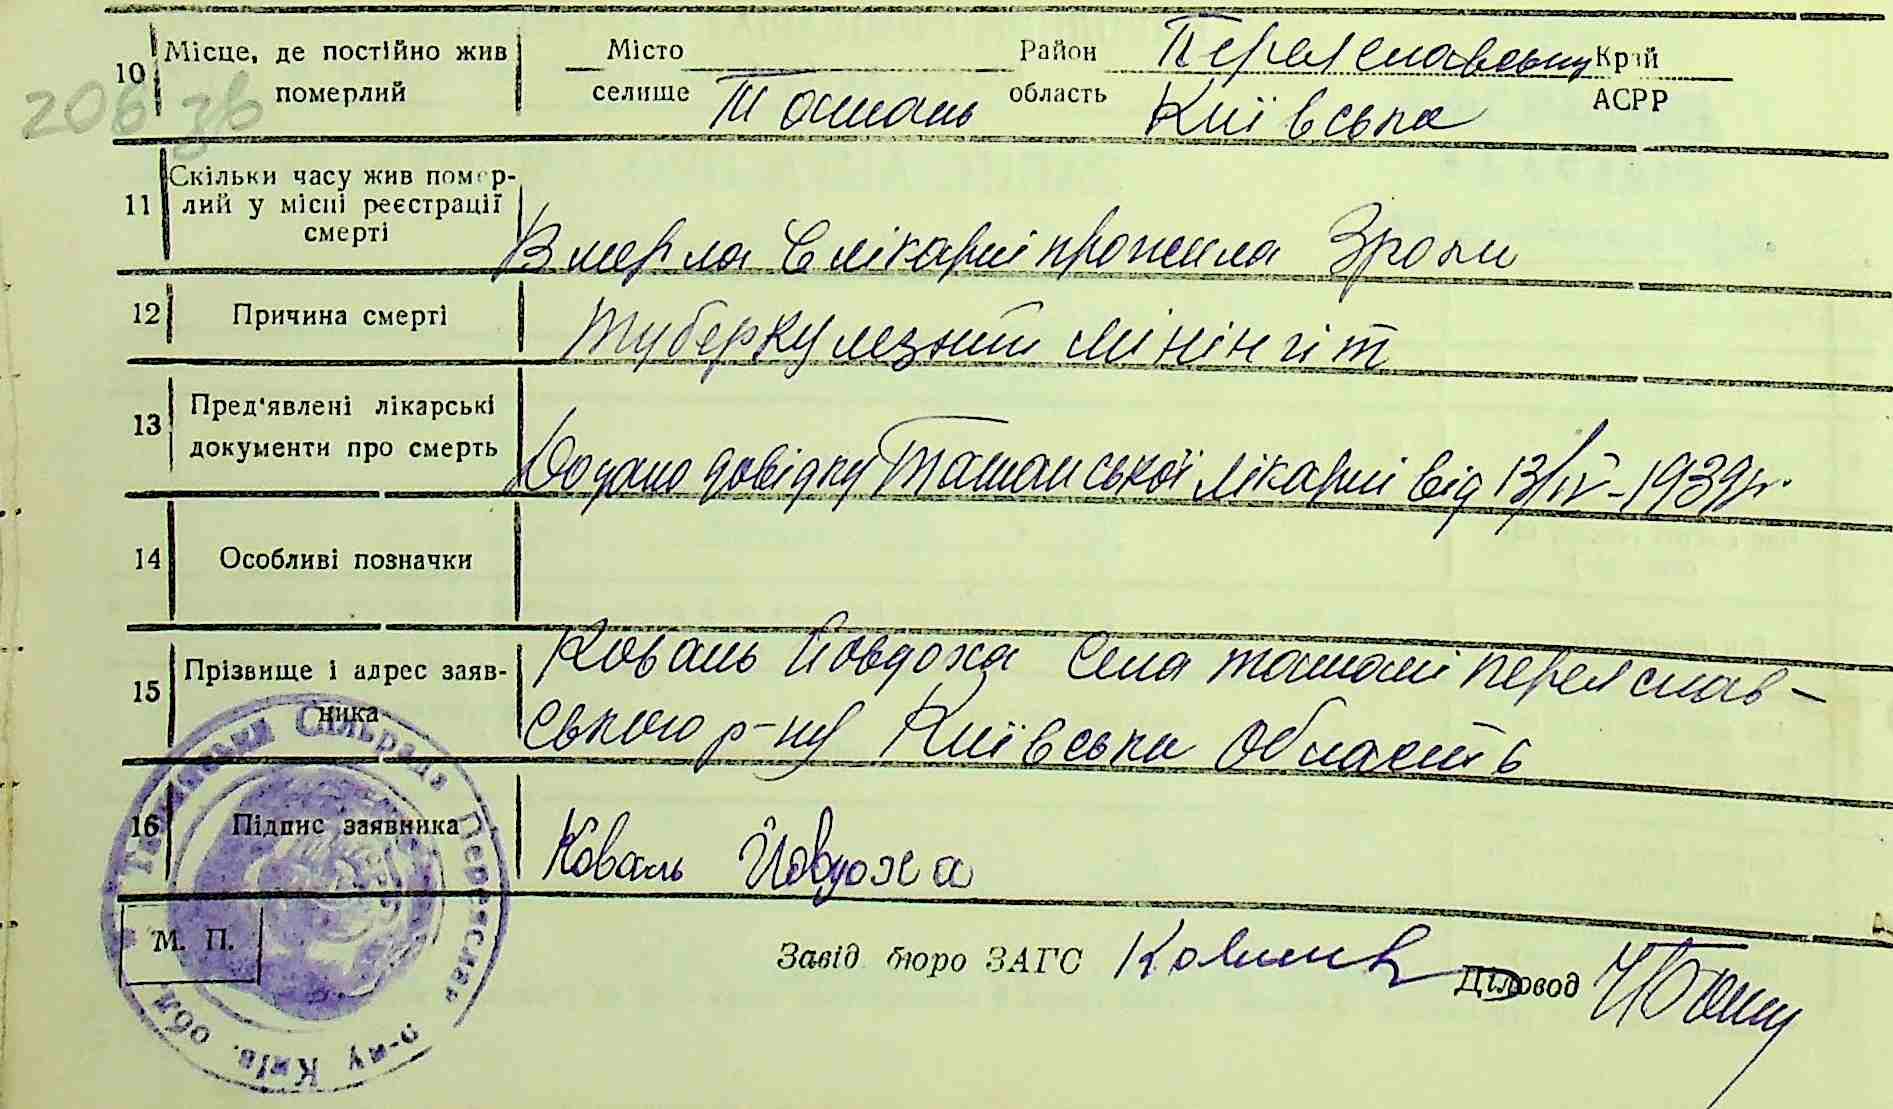 10 Місце, де постійно жив померлий
Місто селище Ташань
Район область Переяславський Київська
Край АСРР
206 зв
11 Скільки часу жив померлий у місці реєстрації смерті
Вмерла в лікарні прожила 3 роки
12 Причина смерті
Туберкулезний мінінгіт
13 Пред'явлені лікарські документи про смерть
Додано довідку Ташанської лікарні від 13/IV-1939 р.
14 Особливі позначки
15 Прізвище і адрес заявника
Коваль Йовдоха села ташані переяслав-
ського р-ну Київська область
16 Підпис заявника
Коваль Йовдоха
М. П.
Ташанська Сільрада Переяслав. р-ну Київ. обл.
Завід бюро ЗАГС
Діловод